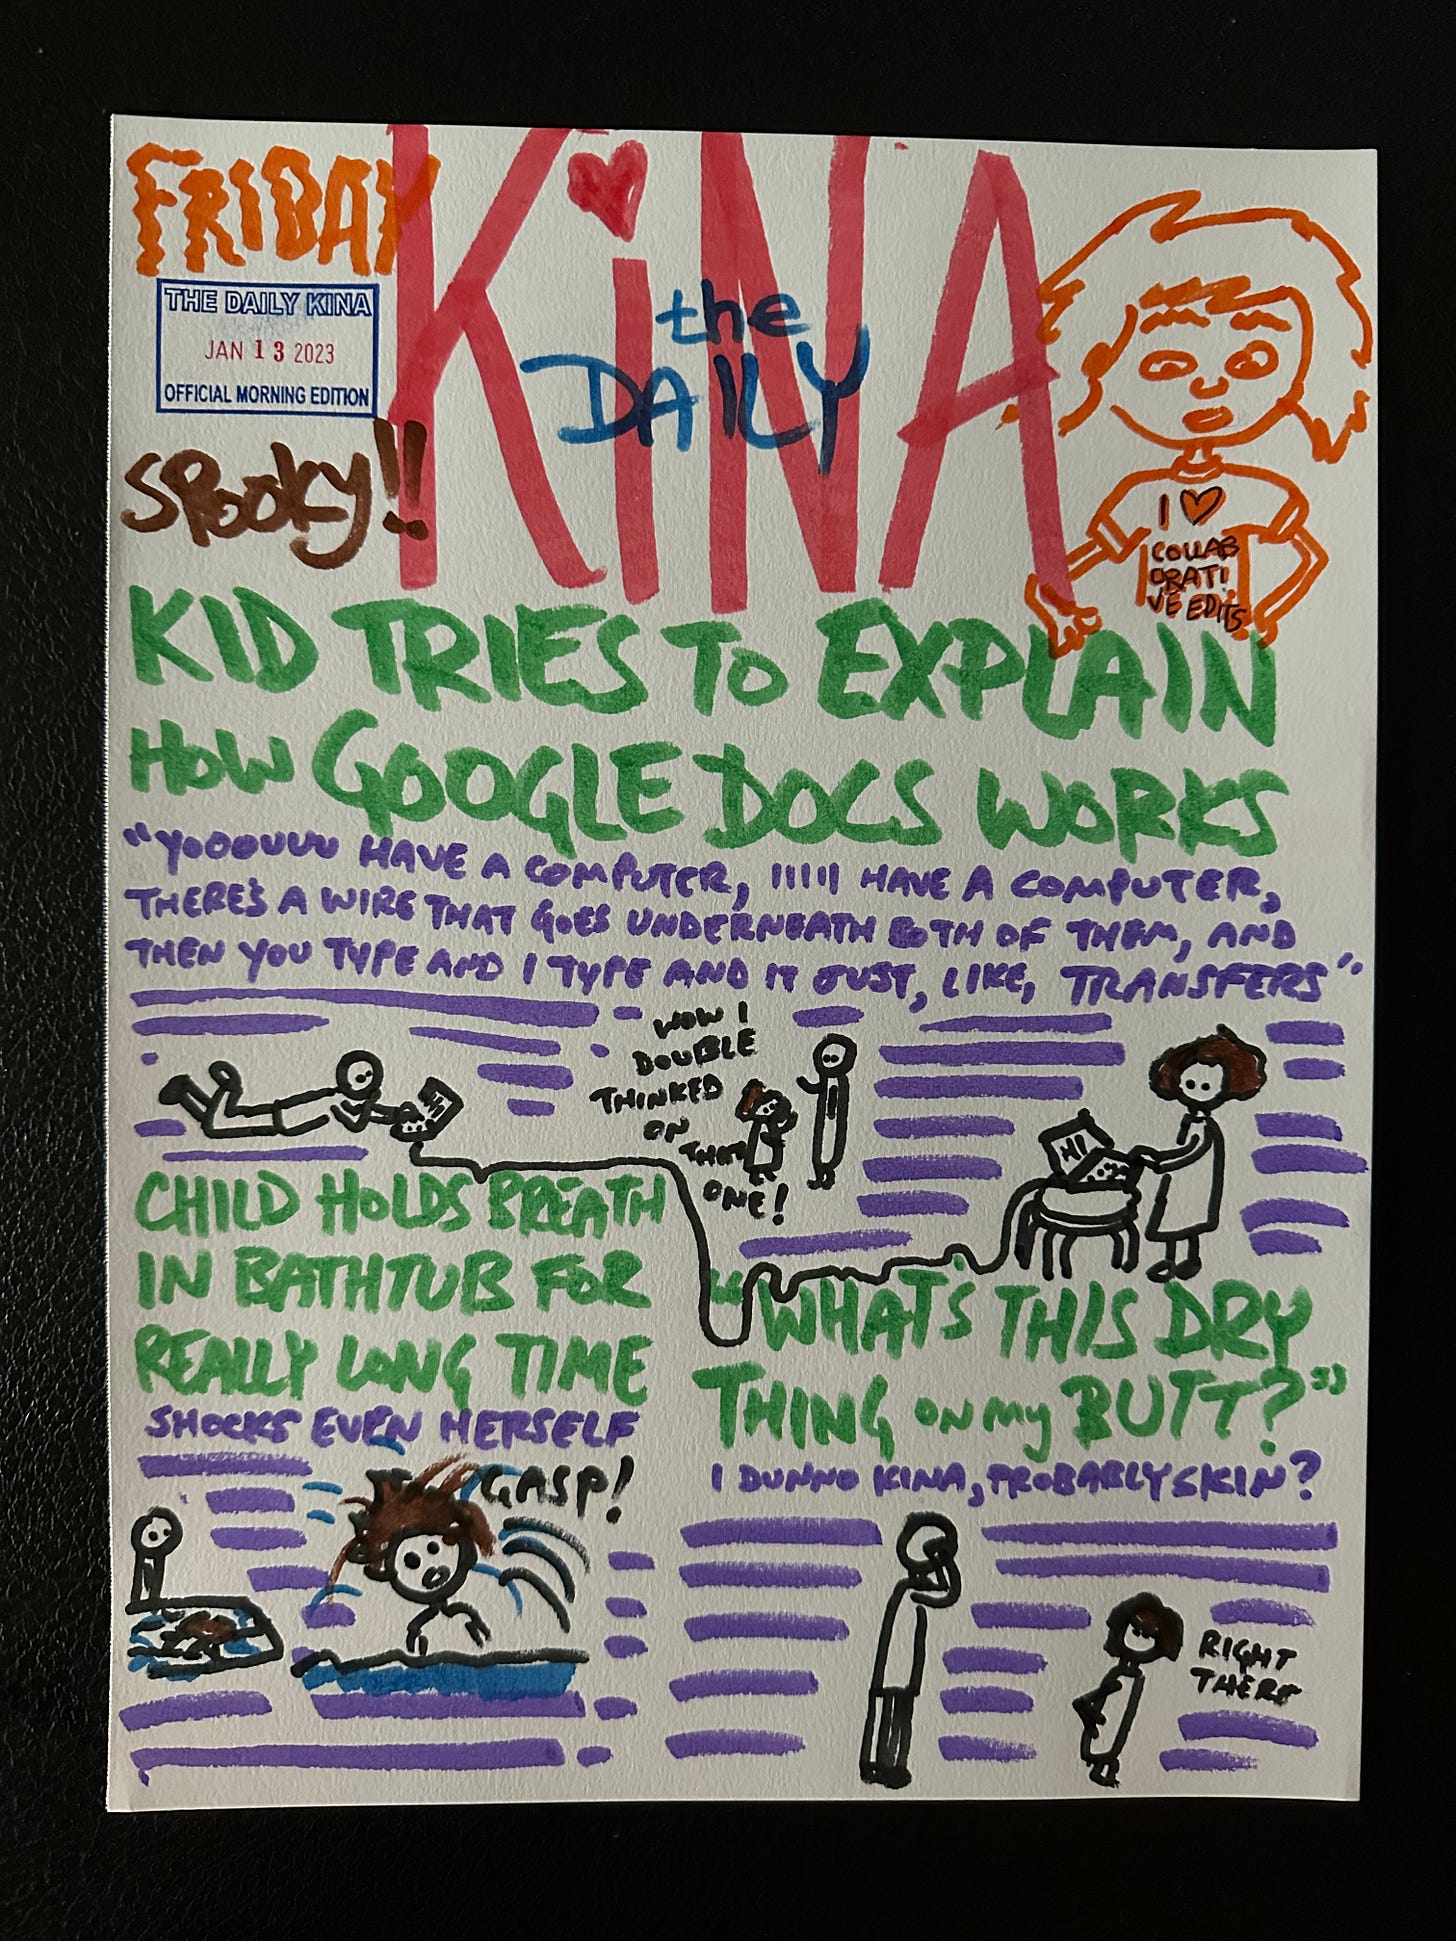 FRIDAY
THE DAILY KINA
JAN 13 2023
OFFICIAL MORNING EDITION
SPOOKY!!
the
DAILY
KiNA
I ♥
COLLAB
ORATI
VE EDITS
KID TRIES TO EXPLAIN
HOW GOOGLE DOCS WORKS
"YOOOUUU HAVE A COMPUTER, IIIII HAVE A COMPUTER,
THERE'S A WIRE THAT GOES UNDERNEATH BOTH OF THEM, AND
THEN YOU TYPE AND I TYPE AND IT JUST, LIKE, TRANSFERS"
WOW I
DOUBLE
THINKED
ON
THAT
ONE!
HI
CHILD HOLDS BREATH
IN BATHTUB FOR
REALLY LONG TIME
SHOCKS EVEN HERSELF
GASP!
"WHAT'S THIS DRY
THING ON MY BUTT?"
I DUNNO KINA, PROBABLY SKIN?
RIGHT
THERE